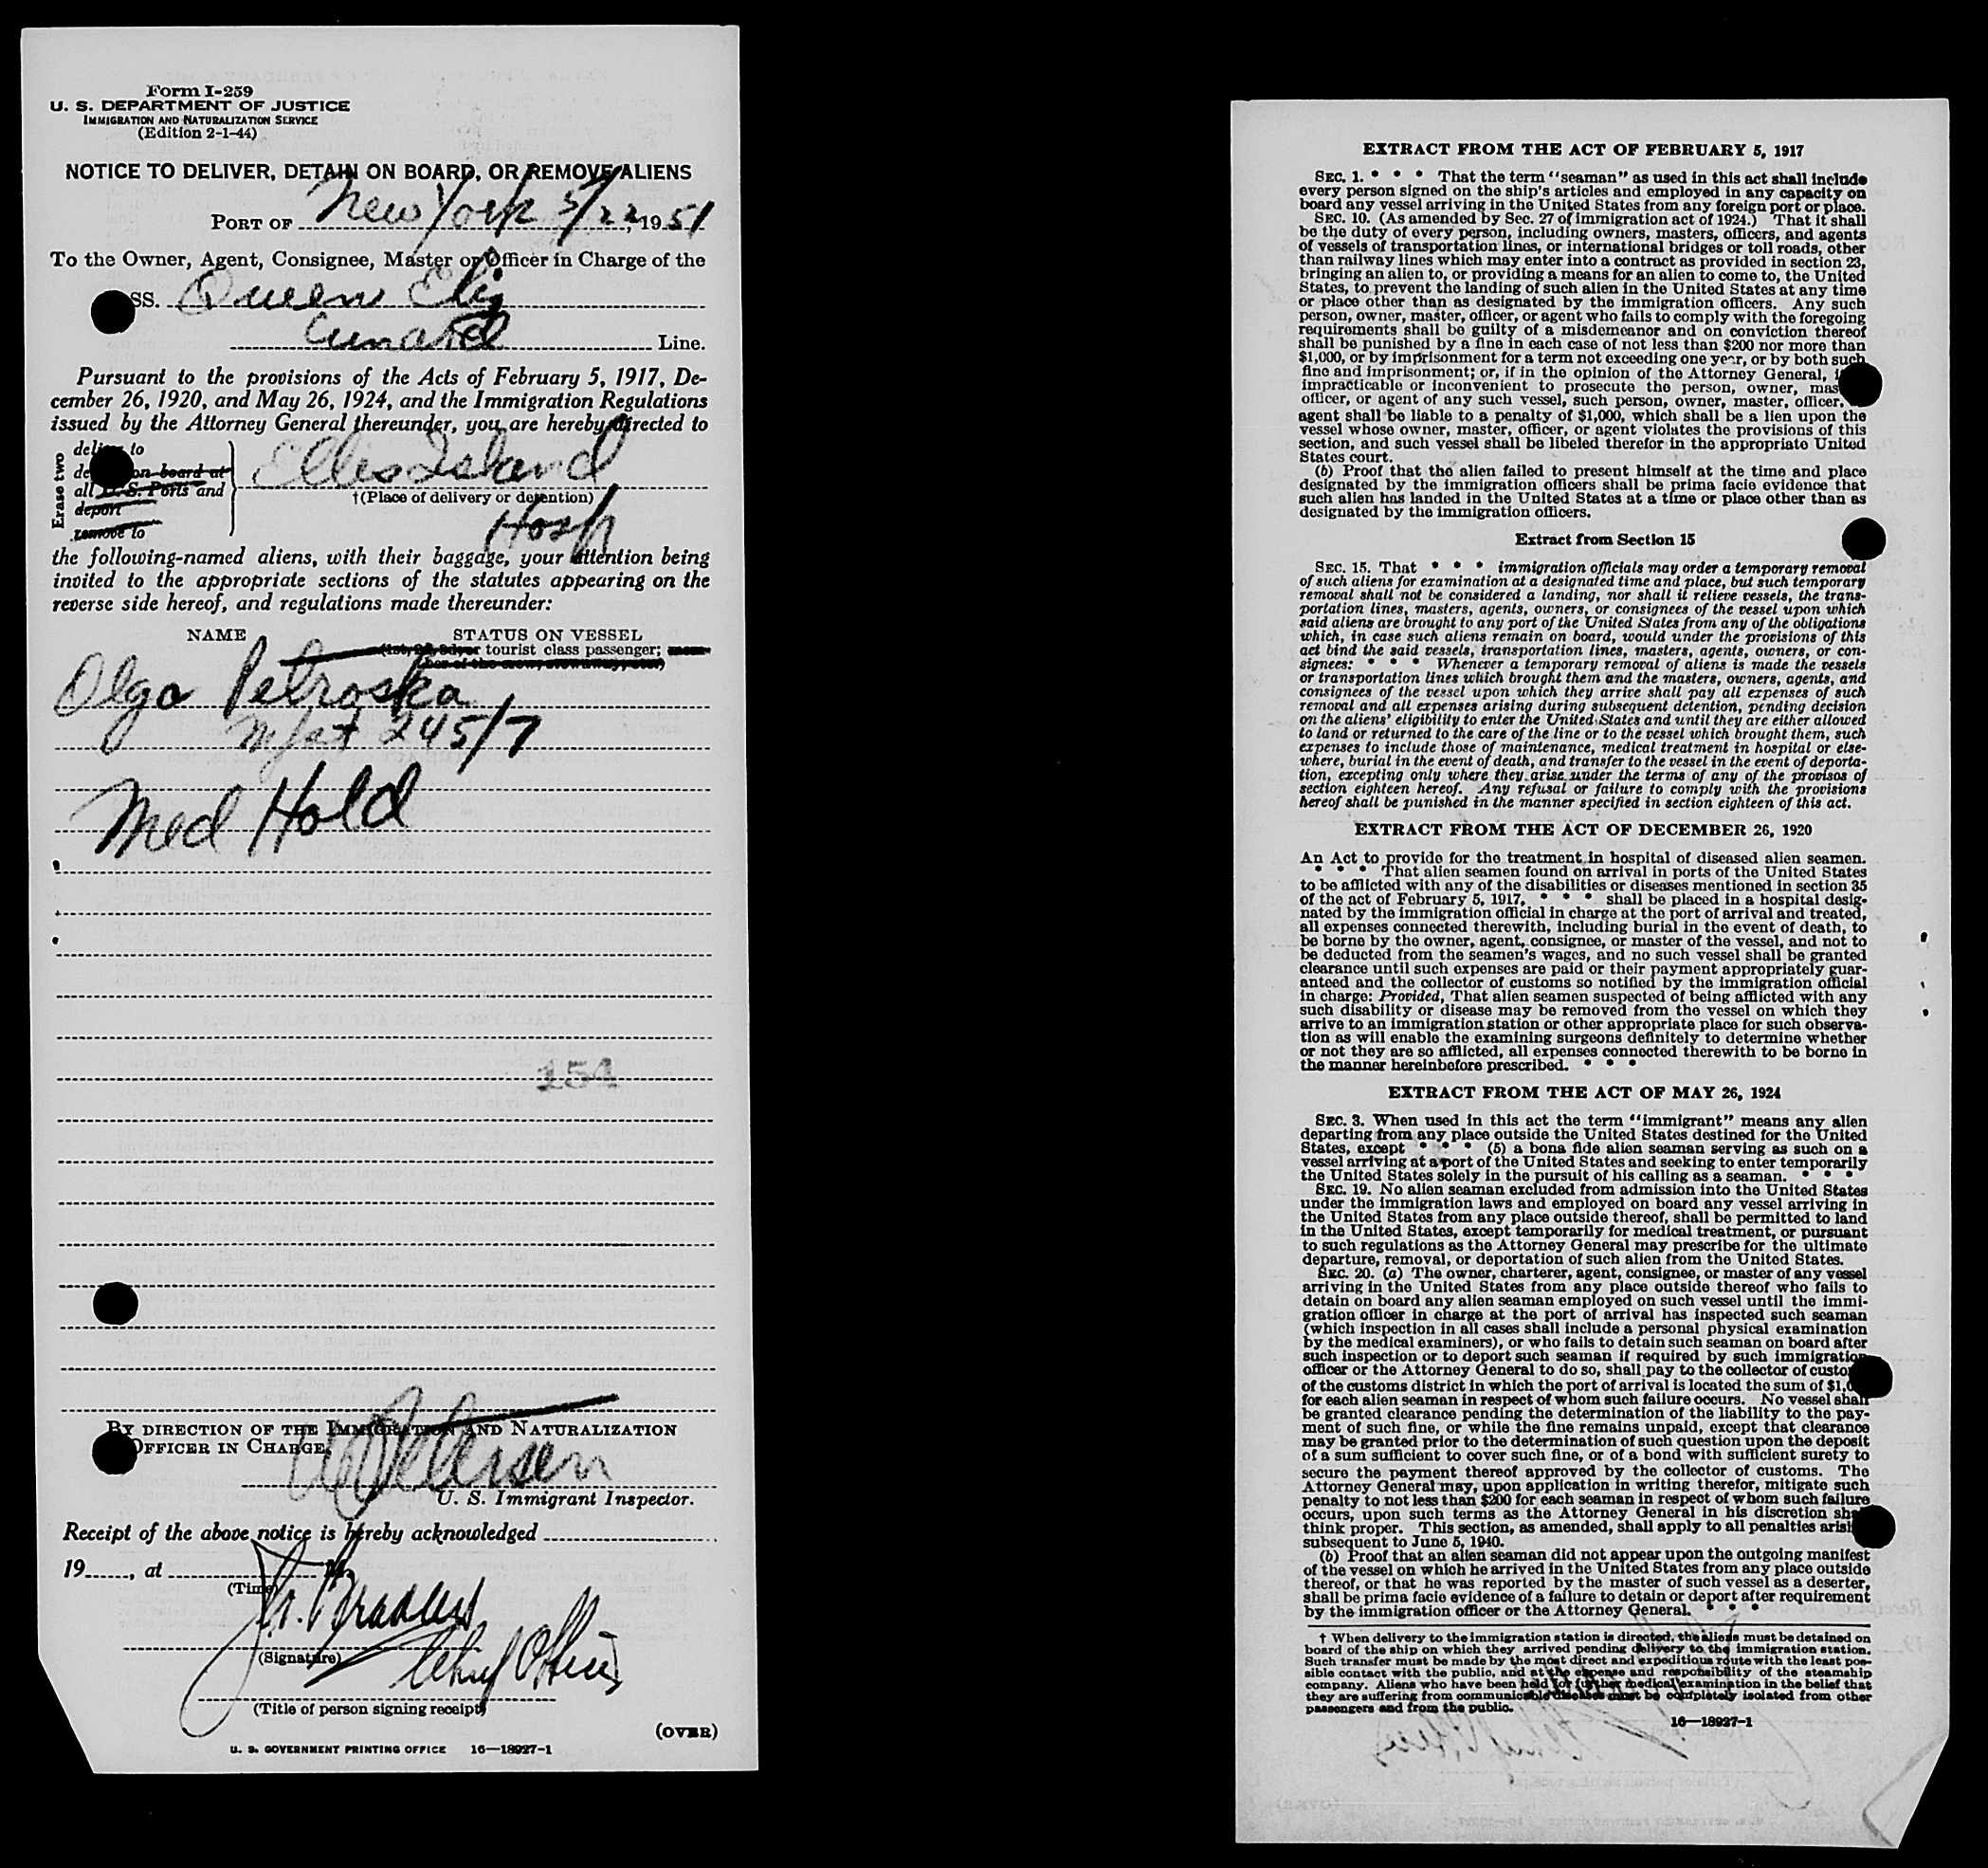 Form I-259
U. S. DEPARTMENT OF JUSTICE
IMMIGRATION AND NATURALIZATION SERVICE
(Edition 2-1-44)
NOTICE TO DELIVER, DETAIN ON BOARD, OR REMOVE ALIENS
PORT OF New York 5/22, 1951
To the Owner, Agent, Consignee, Master or Officer in Charge of the
SS. Queen Eliz
Cunard Line.
Pursuant to the provisions of the Acts of February 5, 1917, De-
cember 26, 1920, and May 26, 1924, and the Immigration Regulations
issued by the Attorney General thereunder, you are hereby directed to
Erase two
deliver to
on board at
all U. S. Ports and
deport
remove to
Ellis Island
†(Place of delivery or detention)
Hosp
the following-named aliens, with their baggage, your attention being
invited to the appropriate sections of the statutes appearing on the
reverse side hereof, and regulations made thereunder:
NAME STATUS ON VESSEL
tourist class passenger;
Olga Petroska
Mfst 245/7
Med Hold
154
BY DIRECTION OF THE IMMIGRATION AND NATURALIZATION
OFFICER IN CHARGE.
Petersen
U. S. Immigrant Inspector.
Receipt of the above notice is hereby acknowledged
19, at M.
(Time)
(Signature)
Chief Officer
(Title of person signing receipt)
(OVER)
U. S. GOVERNMENT PRINTING OFFICE 16—18927-1
EXTRACT FROM THE ACT OF FEBRUARY 5, 1917
SEC. 1. * * * That the term "seaman" as used in this act shall include
every person signed on the ship's articles and employed in any capacity on
board any vessel arriving in the United States from any foreign port or place.
SEC. 10. (As amended by Sec. 27 of immigration act of 1924.) That it shall
be the duty of every person, including owners, masters, officers, and agents
of vessels of transportation lines, or international bridges or toll roads, other
than railway lines which may enter into a contract as provided in section 23,
bringing an alien to, or providing a means for an alien to come to, the United
States, to prevent the landing of such alien in the United States at any time
or place other than as designated by the immigration officers. Any such
person, owner, master, officer, or agent who fails to comply with the foregoing
requirements shall be guilty of a misdemeanor and on conviction thereof
shall be punished by a fine in each case of not less than $200 nor more than
$1,000, or by imprisonment for a term not exceeding one year, or by both such
fine and imprisonment; or, if in the opinion of the Attorney General,
impracticable or inconvenient to prosecute the person, owner, mas
officer, or agent of any such vessel, such person, owner, master, officer,
agent shall be liable to a penalty of $1,000, which shall be a lien upon the
vessel whose owner, master, officer, or agent violates the provisions of this
section, and such vessel shall be libeled therefor in the appropriate United
States court.
(b) Proof that the alien failed to present himself at the time and place
designated by the immigration officers shall be prima facie evidence that
such alien has landed in the United States at a time or place other than as
designated by the immigration officers.
Extract from Section 15
SEC. 15. That * * * immigration officials may order a temporary removal
of such aliens for examination at a designated time and place, but such temporary
removal shall not be considered a landing, nor shall it relieve vessels, the trans-
portation lines, masters, agents, owners, or consignees of the vessel upon which
said aliens are brought to any port of the United States from any of the obligations
which, in case such aliens remain on board, would under the provisions of this
act bind the said vessels, transportation lines, masters, agents, owners, or con-
signees: * * * Whenever a temporary removal of aliens is made the vessels
or transportation lines which brought them and the masters, owners, agents, and
consignees of the vessel upon which they arrive shall pay all expenses of such
removal and all expenses arising during subsequent detention, pending decision
on the aliens' eligibility to enter the United States and until they are either allowed
to land or returned to the care of the line or to the vessel which brought them, such
expenses to include those of maintenance, medical treatment in hospital or else-
where, burial in the event of death, and transfer to the vessel in the event of deporta-
tion, excepting only where they arise under the terms of any of the provisos of
section eighteen hereof. Any refusal or failure to comply with the provisions
hereof shall be punished in the manner specified in section eighteen of this act.
EXTRACT FROM THE ACT OF DECEMBER 26, 1920
An Act to provide for the treatment in hospital of diseased alien seamen.
* * * That alien seamen found on arrival in ports of the United States
to be afflicted with any of the disabilities or diseases mentioned in section 35
of the act of February 5, 1917, * * * shall be placed in a hospital desig-
nated by the immigration official in charge at the port of arrival and treated,
all expenses connected therewith, including burial in the event of death, to
be borne by the owner, agent, consignee, or master of the vessel, and not to
be deducted from the seamen's wages, and no such vessel shall be granted
clearance until such expenses are paid or their payment appropriately guar-
anteed and the collector of customs so notified by the immigration official
in charge: Provided, That alien seamen suspected of being afflicted with any
such disability or disease may be removed from the vessel on which they
arrive to an immigration station or other appropriate place for such observa-
tion as will enable the examining surgeons definitely to determine whether
or not they are so afflicted, all expenses connected therewith to be borne in
the manner hereinbefore prescribed. * * *
EXTRACT FROM THE ACT OF MAY 26, 1924
SEC. 3. When used in this act the term "immigrant" means any alien
departing from any place outside the United States destined for the United
States, except * * * (5) a bona fide alien seaman serving as such on a
vessel arriving at a port of the United States and seeking to enter temporarily
the United States solely in the pursuit of his calling as a seaman. * * *
SEC. 19. No alien seaman excluded from admission into the United States
under the immigration laws and employed on board any vessel arriving in
the United States from any place outside thereof, shall be permitted to land
in the United States, except temporarily for medical treatment, or pursuant
to such regulations as the Attorney General may prescribe for the ultimate
departure, removal, or deportation of such alien from the United States.
SEC. 20. (a) The owner, charterer, agent, consignee, or master of any vessel
arriving in the United States from any place outside thereof who fails to
detain on board any alien seaman employed on such vessel until the immi-
gration officer in charge at the port of arrival has inspected such seaman
(which inspection in all cases shall include a personal physical examination
by the medical examiners), or who fails to detain such seaman on board after
such inspection or to deport such seaman if required by such immigration
officer or the Attorney General to do so, shall pay to the collector of custo
of the customs district in which the port of arrival is located the sum of $1,0
for each alien seaman in respect of whom such failure occurs. No vessel shall
be granted clearance pending the determination of the liability to the pay-
ment of such fine, or while the fine remains unpaid, except that clearance
may be granted prior to the determination of such question upon the deposit
of a sum sufficient to cover such fine, or of a bond with sufficient surety to
secure the payment thereof approved by the collector of customs. The
Attorney General may, upon application in writing therefor, mitigate such
penalty to not less than $200 for each seaman in respect of whom such failure
occurs, upon such terms as the Attorney General in his discretion sha
think proper. This section, as amended, shall apply to all penalties arisi
subsequent to June 5, 1940.
(b) Proof that an alien seaman did not appear upon the outgoing manifest
of the vessel on which he arrived in the United States from any place outside
thereof, or that he was reported by the master of such vessel as a deserter,
shall be prima facie evidence of a failure to detain or deport after requirement
by the immigration officer or the Attorney General. * * *
† When delivery to the immigration station is directed, the aliens must be detained on
board of the ship on which they arrived pending delivery to the immigration station.
Such transfer must be made by the most direct and expeditious route with the least pos-
sible contact with the public, and at the expense and responsibility of the steamship
company. Aliens who have been held for further medical examination in the belief that
they are suffering from communicable diseases must be completely isolated from other
passengers and from the public.
16—18927-1